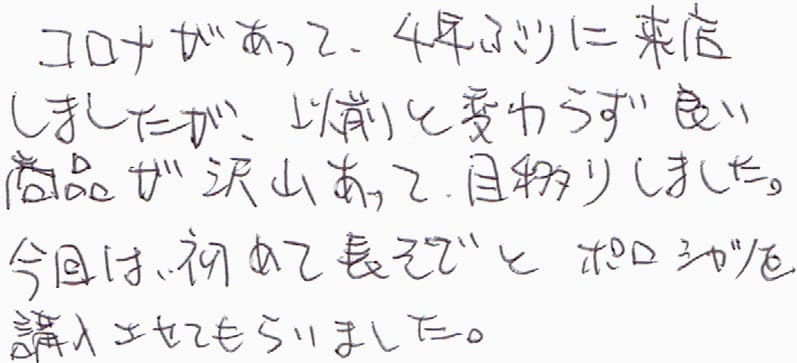 コロナがあって、4年ぶりに来店
しましたが、以前と変わらず良い
商品が沢山あって、目移りしました。
今回は、初めて長そでとポロシャツを
講入させてもらいました。